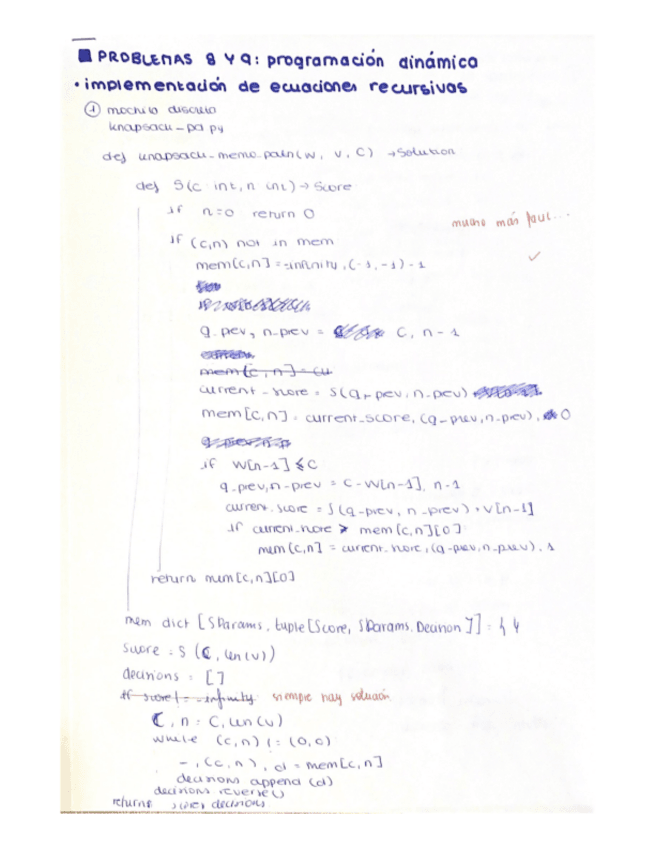 ■ PROBLEMAS 8 Y 9: programación dinámica
• implementación de ecuaciones recursivas
1 mochila discreta
knapsack_pd py
def knapsack_memo_path(W, V, C) →Solution
def S(c int, n int) → Score
if n=0 return 0
mucho más fácil...
if (c,n) not in mem
✓
mem[c,n] = -infinity, (-1, -1) -1
q_prev, n_prev = C, n-1
mem[c,n]=
current_score = S(q_prev, n_prev)
mem[c,n] = current_score, (q_prev, n_prev), 0
if W[n-1] ≤ C
q_prev, n_prev = C-W[n-1], n-1
current_score = S(q_prev, n_prev) + V[n-1]
if current_score > mem[c,n][0]
mem[c,n] = current_score, (q_prev, n_prev), 1
return mem[c,n][0]
mem dict [SParams, tuple[Score, SParams, Decision]] = { }
score = S (C, len(v))
decisions = []
if score != -infinity siempre hay solución
C, n = C, len(v)
while (c,n) != (0,0)
_, (c,n), d = mem[c,n]
decisions append (d)
decisions reverse()
returns score, decisions